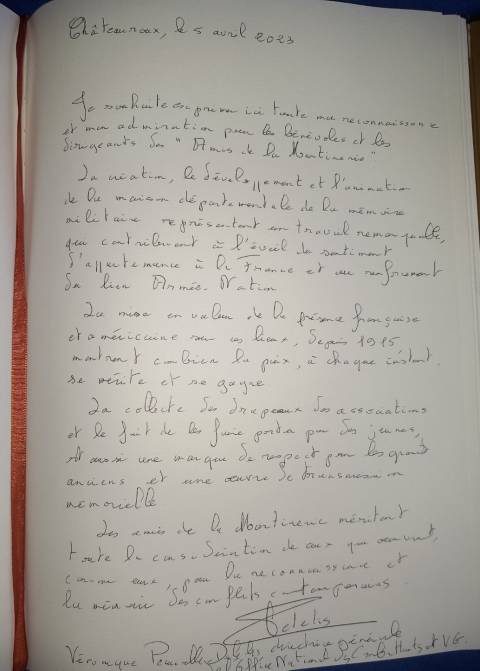 Châteauroux, le 5 avril 2023
Je souhaite exprimer ici toute ma reconnaissance
et mon admiration pour les bénévoles et les
dirigeants des "Amis de la Martinerie"
La création, le développement et l'animation
de la maison départementale de la mémoire
militaire représentent un travail remarquable,
qui contribuent à l'éveil du sentiment
d'appartenance à la France et au renforcement
du lien Armée. Nation
La mise en valeur de la présence française
et américaine sur ces lieux, depuis 1915
montrent combien la paix, à chaque instant
se mérite et se gagne
La collecte des drapeaux des associations
et le fait de les faire porter par des jeunes,
est aussi une marque de respect pour les grands
anciens et une œuvre de transmission
mémorielle
Les amis de la Martinerie méritent
toute la considération de ceux qui œuvrent,
comme eux, pour la reconnaissance et
la mémoire des conflits contemporains.
Véronique directrice générale
de l'Office National des Combattants et V.G.